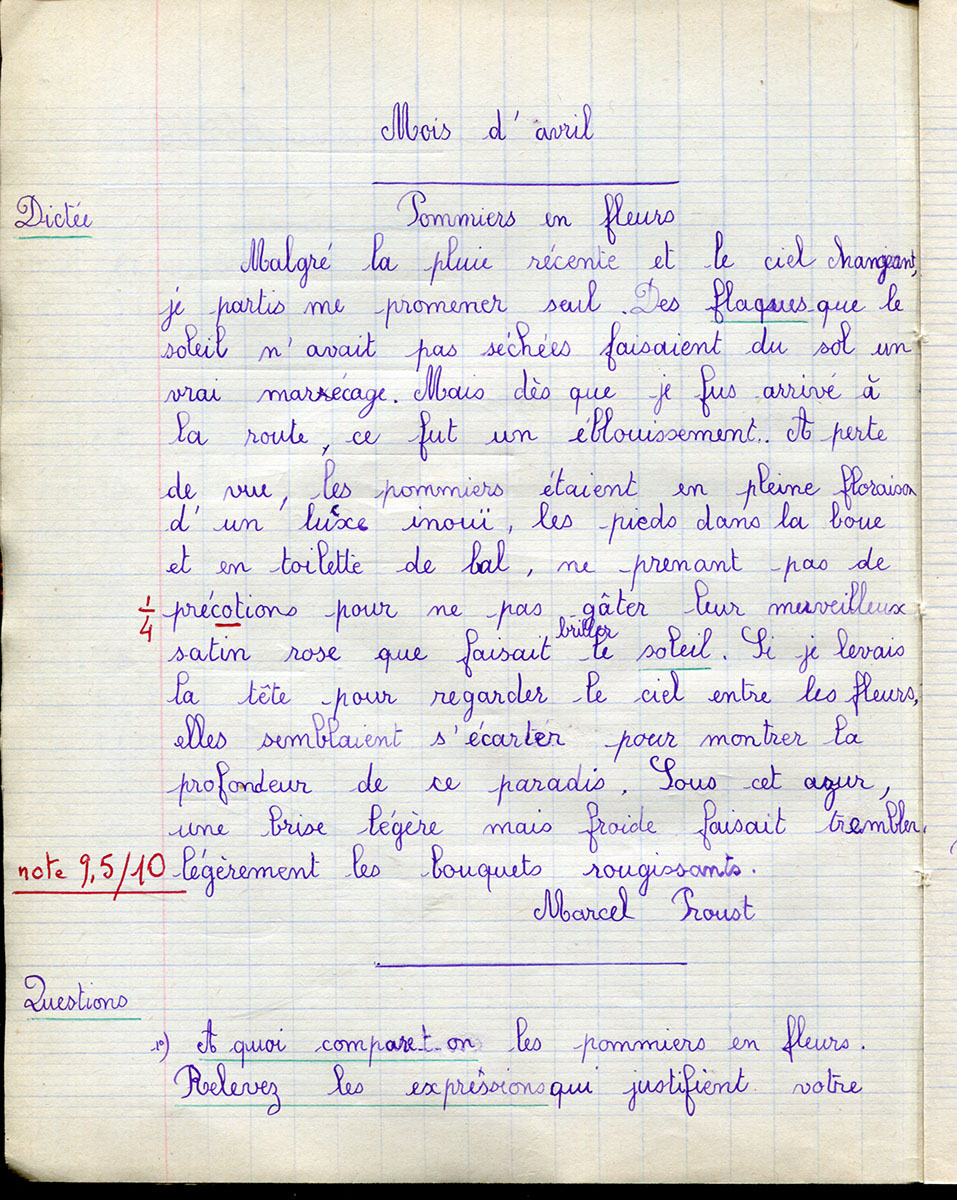 Mois d'avril
Dictée
Pommiers en fleurs
Malgré la pluie récente et le ciel changeant,
je partis me promener seul. Des flaques que le
soleil n'avait pas séchées faisaient du sol un
vrai marécage. Mais dès que je fus arrivé à
la route, ce fut un éblouissement. A perte
de vue, les pommiers étaient en pleine floraison
d'un luxe inouï, les pieds dans la boue
et en toilette de bal, ne prenant pas de
1/4 précotions pour ne pas gâter leur merveilleux
satin rose que faisait briller le soleil. Si je levais
la tête pour regarder le ciel entre les fleurs,
elles semblaient s'écarter pour montrer la
profondeur de ce paradis. Sous cet azur,
une brise légère mais froide faisait trembler
note 9,5/10 légèrement les bouquets rougissants.
Marcel Proust
Questions
1º) A quoi compare-t-on les pommiers en fleurs.
Relevez les expressions qui justifient votre